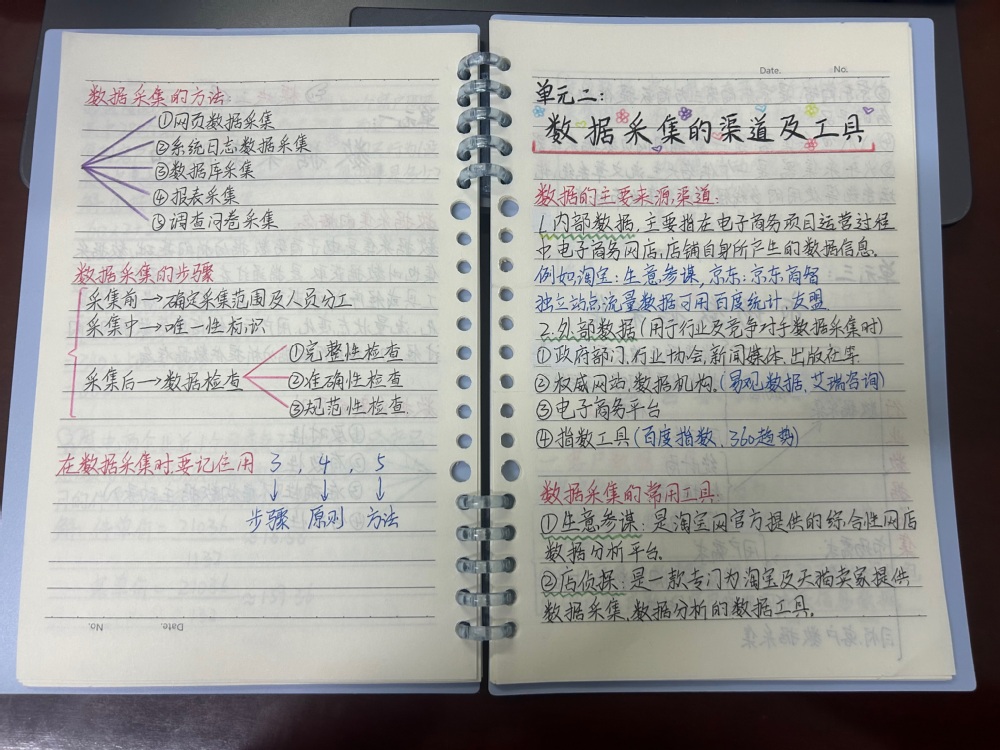 数据采集的方法:
①网页数据采集
②系统日志数据采集
③数据库采集
④报表采集
⑤调查问卷采集
数据采集的步骤
采集前→确定采集范围及人员分工
采集中→唯一性标识
①完整性检查
采集后→数据检查
②准确性检查
③规范性检查.
在数据采集时,要记住用 3 , 4 , 5
↓ ↓ ↓
步骤 原则 方法
No. Date.
Date. No.
单元二:
数据采集的渠道及工具
数据的主要来源渠道:
1.内部数据,主要指在电子商务项目运营过程
中电子商务网店,店铺自身所产生的数据信息.
例如淘宝:生意参谋,京东:京东商智
独立站点流量数据可用百度统计、友盟.
2.外部数据(用于行业及竞争对手数据采集时)
①政府部门,行业协会,新闻媒体,出版社等.
②权威网站,数据机构.(易观数据,艾瑞咨询)
③电子商务平台
④指数工具(百度指数、360趋势)
数据采集的常用工具:
①生意参谋:是淘宝网官方提供的综合性网店
数据分析平台.
②店侦探:是一款专门为淘宝及天猫卖家提供
数据采集,数据分析的数据工具.